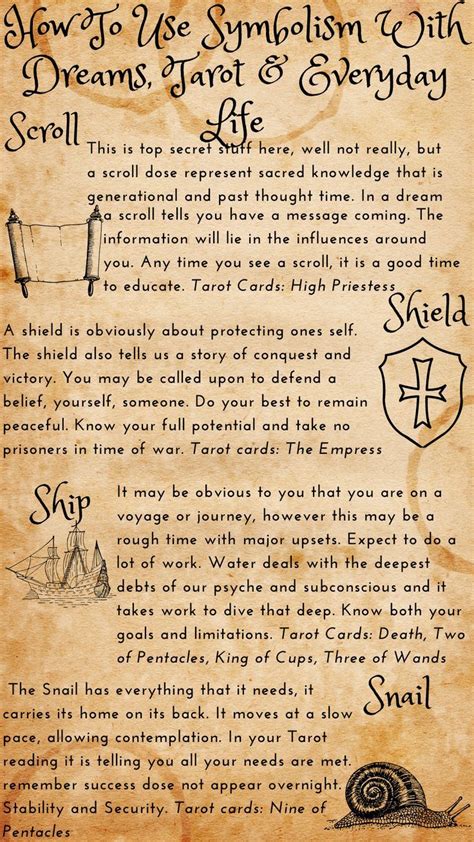 How To Use Symbolism With
Dreams, Tarot & Everyday
Life
Scroll
This is top secret stuff here, well not really, but
a scroll dose represent sacred knowledge that is
generational and past thought time. In a dream
a scroll tells you have a message coming. The
information will lie in the influences around
you. Any time you see a scroll, it is a good time
to educate. Tarot Cards: High Priestess
Shield
A shield is obviously about protecting ones self.
The shield also tells us a story of conquest and
victory. You may be called upon to defend a
belief, yourself, someone. Do your best to remain
peaceful. Know your full potential and take no
prisoners in time of war. Tarot cards: The Empress
Ship
It may be obvious to you that you are on a
voyage or journey, however this may be a
rough time with major upsets. Expect to do a
lot of work. Water deals with the deepest
debts of our psyche and subconscious and it
takes work to dive that deep. Know both your
goals and limitations. Tarot Cards: Death, Two
of Pentacles, King of Cups, Three of Wands
Snail
The Snail has everything that it needs, it
carries its home on its back. It moves at a slow
pace, allowing contemplation. In your Tarot
reading it is telling you all your needs are met.
remember success dose not appear overnight.
Stability and Security. Tarot cards: Nine of
Pentacles